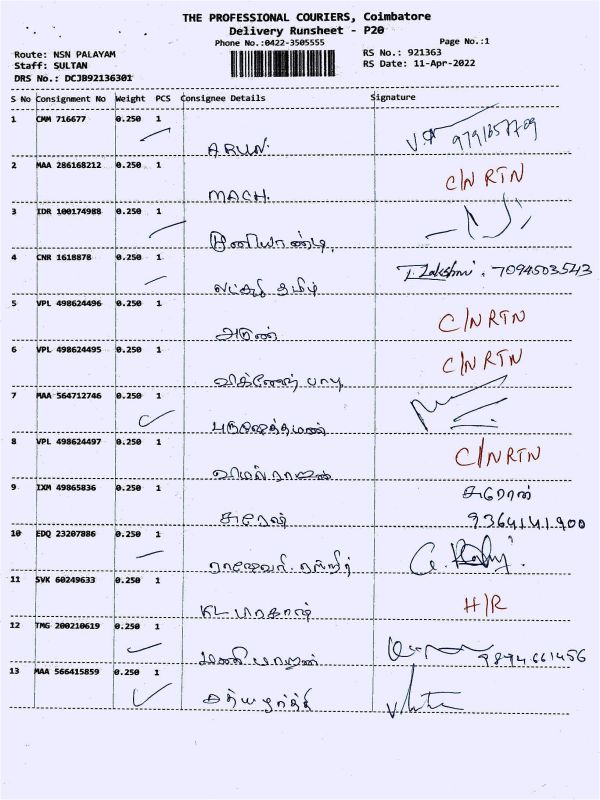 THE PROFESSIONAL COURIERS, Coimbatore
Delivery Runsheet - P20
Phone No.:0422-3505555
Page No.:1
Route: NSN PALAYAM
RS No.: 921363
Staff: SULTAN
RS Date: 11-Apr-2022
DRS No.: DCJB92136301
S No Consignment No Weight PCS Consignee Details Signature
1 CMM 716677 0.250 1
ARUN.
2 MAA 286168212 0.250 1 C/N RTN
MACH.
3 IDR 100174988 0.250 1
4 CNR 1618878 0.250 1
T. Lakshmi . 7094503543
5 VPL 498624496 0.250 1 C/N RTN
அருண்
6 VPL 498624495 0.250 1 C/N RTN
7 MAA 564712746 0.250 1
8 VPL 498624497 0.250 1 C/N RTN
9 IXM 49865836 0.250 1
சுரேஷ்
9364141900
10 EDQ 23207886 0.250 1
11 SVK 60249633 0.250 1 H/R
KL
12 TMG 200210619 0.250 1
9894661456
13 MAA 566415859 0.250 1